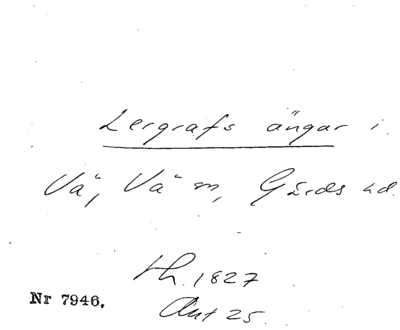 Lergrafs ängar i
Vä, Vä sn, Gärds hd.
th. 1827
Ant 25.
Nr 7946.